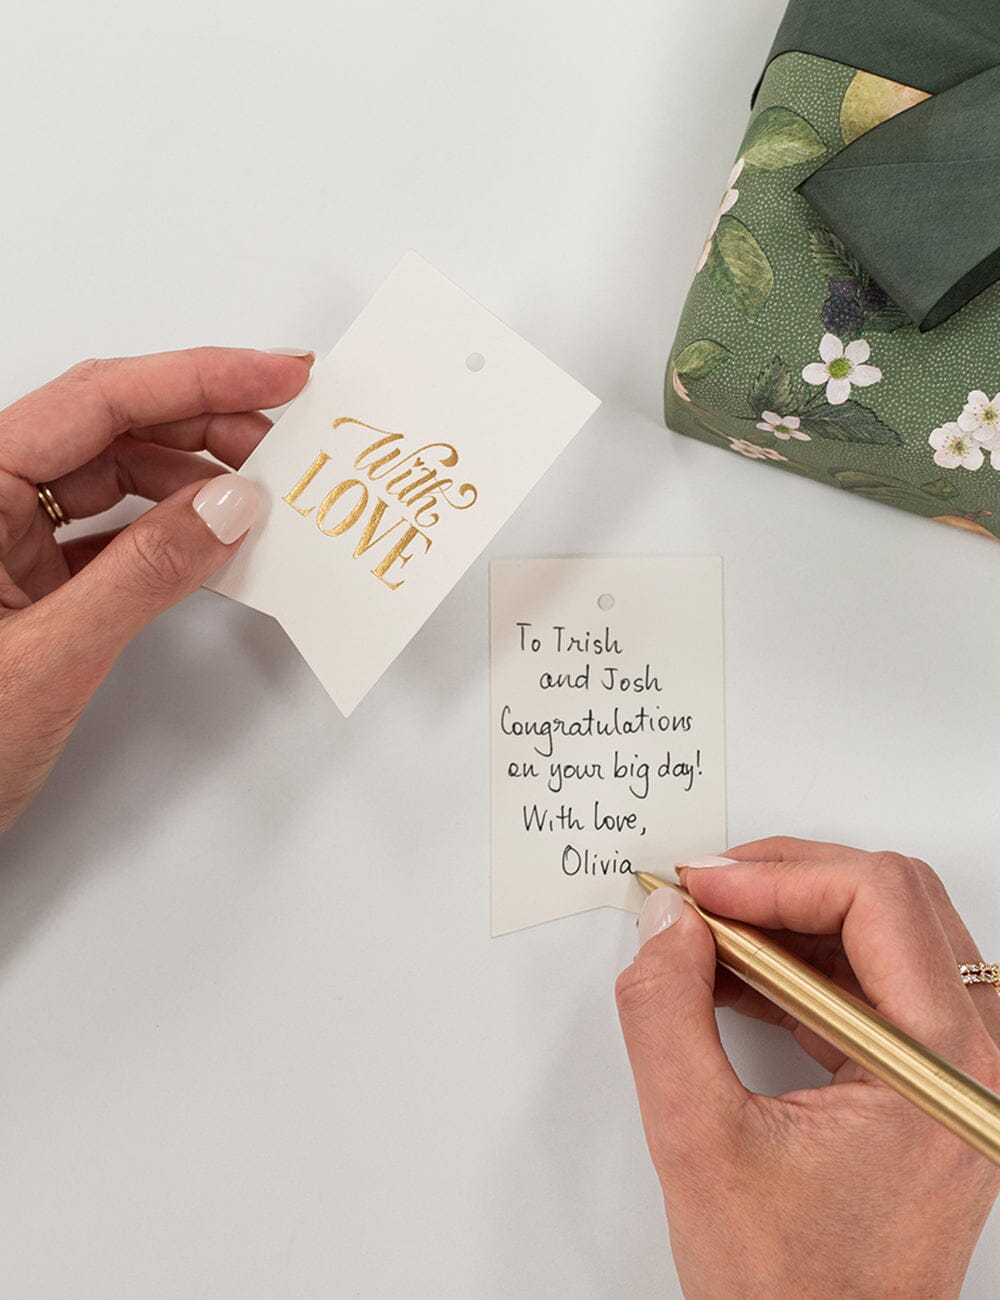 With
LOVE
To Trish
and Josh
Congratulations
on your big day!
With love,
Olivia